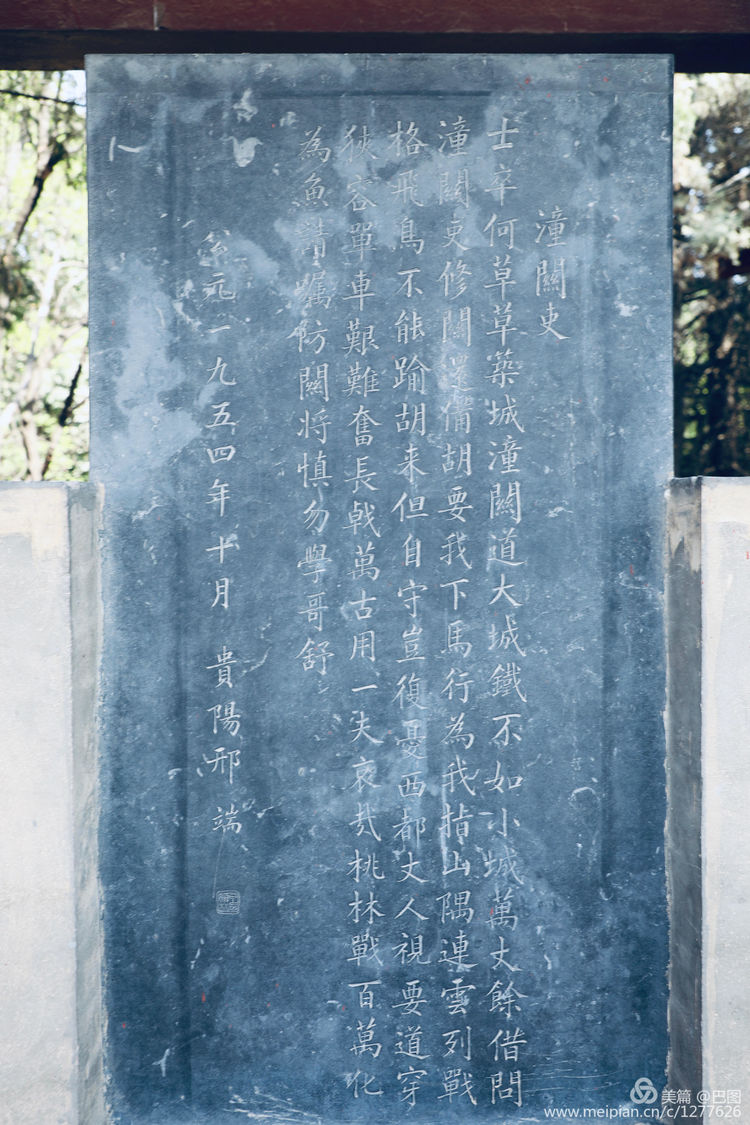 潼關吏
士卒何草草築城潼關道大城鐵不如小城萬丈餘借問
潼關吏修關還備胡要我下馬行為我指山隅連雲列戰
格飛鳥不能踰胡来但自守豈復憂西都丈人視要道窄
狹容單車艱難奮長戟萬古用一夫哀哉桃林戰百萬化
為魚請囑防關將慎勿學哥舒
公元一九五四年十月 貴陽邢端
美篇 @巴图
www.meipian.cn/c/1277626